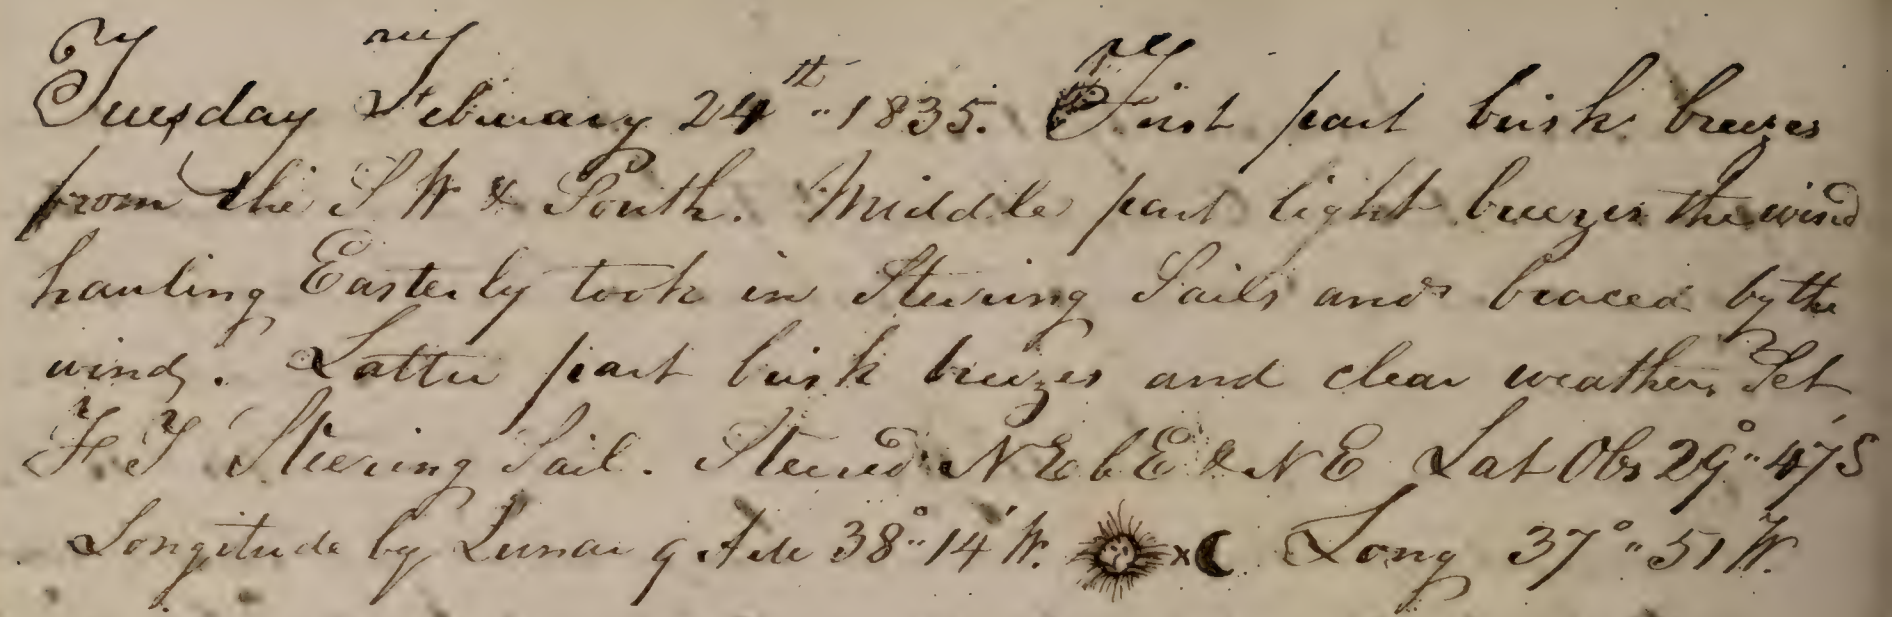 Tuesday February 24th 1835. First part brisk breezes
from the S W & South. Middle part light breezes the wind
hauling Easterly took in Steering Sails and braced by the
wind. Latter part brisk breezes and clear weather, Set
F T Steering Sail. Steered N E b E & N E Lat Obs 29°" 47 S
Longitude by Lunar 38°" 14' W. x Long 37°" 51 W.